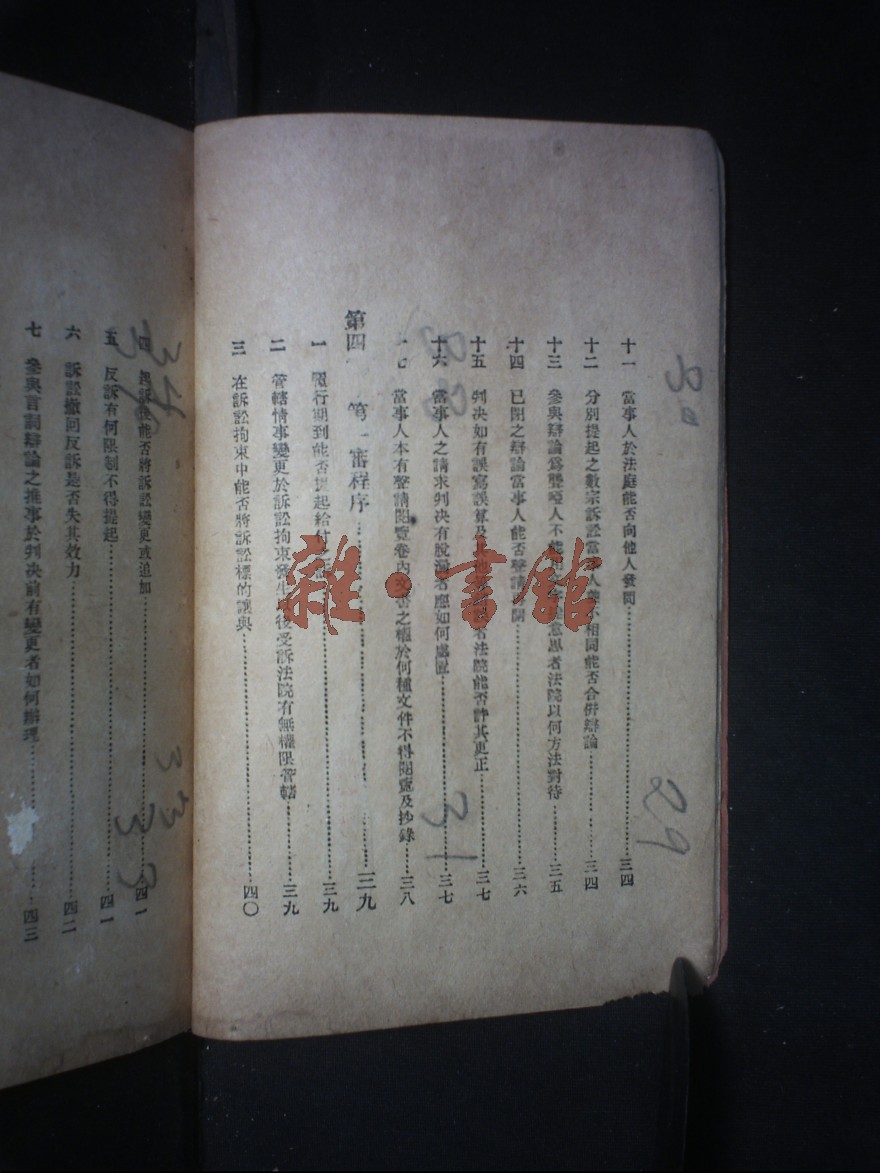 十一 當事人於法庭能否向他人發問…………三四
十二 分別提起之數宗訴訟當 人 相同能否合併辯論…………三四
十三 參與辯論爲聾啞人不能 意思者法院以何方法對待…………三五
十四 已閉之辯論當事人能否聲請再開…………三六
十五 判决如有誤寫誤算及其他 者法院能否許其更正…………三七
十六 當事人之請求判决有脫漏者應如何處置…………三七
十七 當事人本有聲請閱覽卷內文書之權於何種文件不得閱覽及抄錄…………三八
第四 第一審程序…………三九
一 履行期 到能否提起給付 訴…………三九
二 管轄情事變更於訴訟拘束發生以後受訴法院有無權限管轄…………三九
三 在訴訟拘束中能否將訴訟標的讓與…………四〇
四 起訴後能否將訴訟變更或追加…………四一
五 反訴有何限制不得提起…………四一
六 訴訟撤回反訴是否失其效力…………四二
七 參與言詞辯論之推事於判决前有變更者如何辦理…………四三
雜·書館